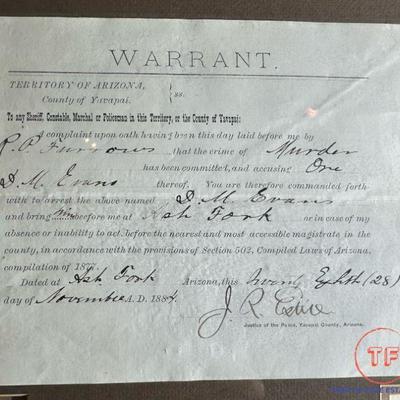 WARRANT.
TERRITORY OF ARIZONA,
County of Yavapai. ss.
To any Sheriff, Constable, Marshal or Policeman in this Territory, or the County of Yavapai:
A complaint upon oath having been this day laid before me by
R. P. Furrows that the crime of Murder
has been committed, and accusing One
D. M. Evans thereof. You are therefore commanded forth
with to arrest the above named D. M. Evans
and bring him before me at Ash Fork or in case of my
absence or inability to act, before the nearest and most accessible magistrate in the
county, in accordance with the provisions of Section 502, Compiled Laws of Arizona,
compilation of 1877
Dated at Ash Fork Arizona, this Twenty Eighth (28)
day of November A. D. 1884.
J. R.
Justice of the Peace, Yavapai County, Arizona.
TF